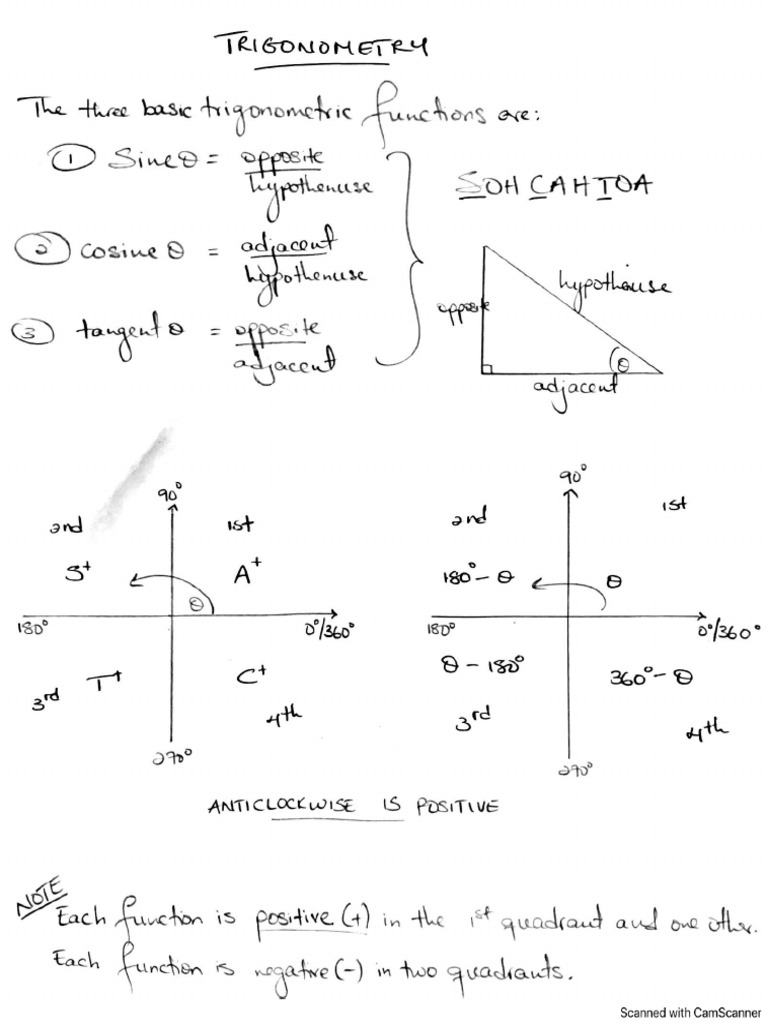 TRIGONOMETRY
The three basic trigonometric functions are:
① Sine θ = opposite
hypothenuse
② cosine θ = adjacent
hypothenuse
③ tangent θ = opposite
adjacent
SOH CAH TOA
opposite
hypothenuse
θ
adjacent
90°
2nd
1st
S+
A+
θ
180°
0°/360°
3rd
T+
C+
4th
270°
90°
2nd
1st
180° - θ
θ
180°
0°/360°
θ - 180°
360° - θ
3rd
4th
270°
ANTICLOCKWISE IS POSITIVE
NOTE
Each function is positive (+) in the 1st quadrant and one other.
Each function is negative (-) in two quadrants.
Scanned with CamScanner